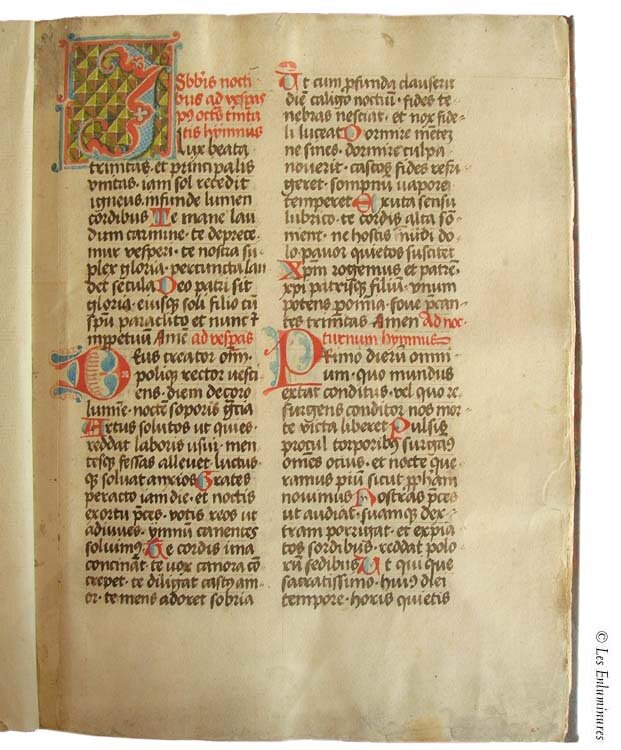 Sbbīs nocti
bus ad vesꝑas
pꝰ octā tinta
tis hymnus
lux beata
trinitas · et principalis
vnitas · iam sol recedit
igneus · infunde lumen
cordibus Te mane lau
dum carmine · te deprece
mur vesperi · te nostra su
plex gloria · per cuncta lau
det secula Deo patri sit
gloria · eiusqꝫ soli filio cū
spū paraclito et nunc ⁊
imꝑpetuū Amē ad vesꝑas
Deus creator om̄
poliqꝫ rector vesti
ens · diem decoro
lumīe · noctē soporis grā
Artus solutos ut quies ·
reddat laboris usui · men
tesqꝫ fessas allevet · luctus
qꝫ soluat anxios Grates
peracto iam die · et noctis
exortu p̄ces · votis reos ut
adiuves · ymnū canentes
soluimꝰ Te cordis ima
concināt · te vox canora cō
crepet · te diligat castꝰ am
or · te mens adoret sobria
Ut cum ꝓfunda clauserit
diē caligo noctiū · fides te
nebras nesciat · et nox fide
li luceat Dormire mētē
ne sines · dormire culpa
noverit · castos fides refri
geret · sompnū vapore
temperet Exuta sensu
lubrico · te cordis alta sō
ment · ne hostis īuidi do
lo pavor quietos suscitet
Xp̄m rogemus et patrē ·
xp̄i patrisqꝫ filiū · vnum
potens ꝑ om̄ia · fove p̄can
tes trinitas Amen Ad noc
turnum hymnus
Primo dierū omni
um · quo mundus
extat conditus · vel quo re
surgens conditor nos mor
te victa liberet Pulsis
procul torporibꝰ surgamꝰ
om̄es ocius · et nocte que
ramus piū sicut ꝓph̄am
novimus Nostras p̄ces
ut audiat · suamqꝫ dex
tram porrigat · et expia
tos sordibus · reddat polo
rū sedibus Ut qui que
sacratissimo · huiꝰ diei
tempore · horis quietis
© Les Enluminures